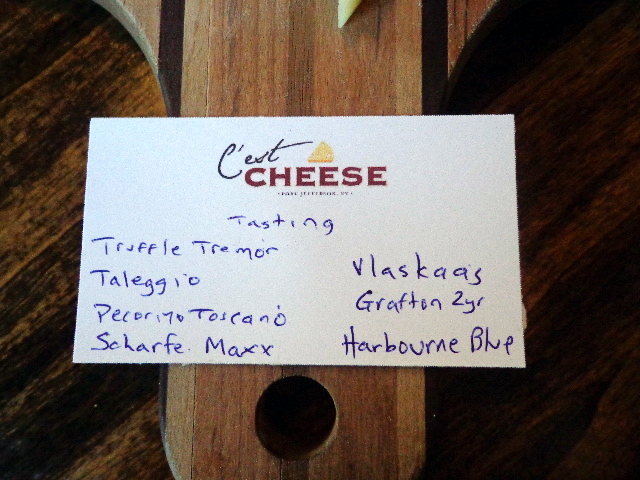 C'est
CHEESE
PORT JEFFERSON, NY
Tasting
Truffle Tremor
Taleggio
Pecorino Toscano
Scharfe Maxx
Vlaskaas
Grafton 2yr
Harbourne Blue